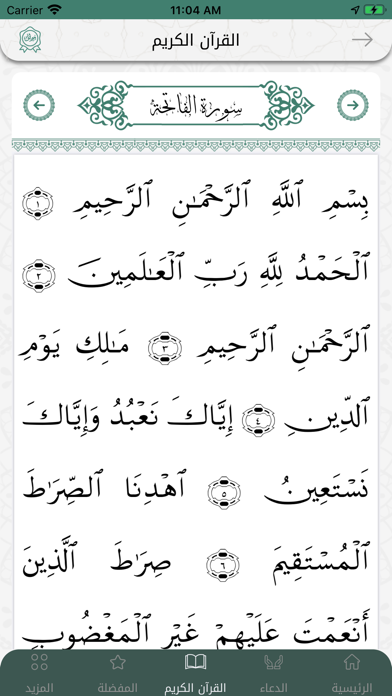 Carrier 11:04 AM
القرآن الكريم
سورة الفاتحة
بِسْمِ ٱللَّهِ ٱلرَّحْمَٰنِ ٱلرَّحِيمِ ١
ٱلْحَمْدُ لِلَّهِ رَبِّ ٱلْعَٰلَمِينَ ٢
ٱلرَّحْمَٰنِ ٱلرَّحِيمِ ٣ مَٰلِكِ يَوْمِ
ٱلدِّينِ ٤ إِيَّاكَ نَعْبُدُ وَإِيَّاكَ
نَسْتَعِينُ ٥ ٱهْدِنَا ٱلصِّرَٰطَ
ٱلْمُسْتَقِيمَ ٦ صِرَٰطَ ٱلَّذِينَ
أَنْعَمْتَ عَلَيْهِمْ غَيْرِ ٱلْمَغْضُوبِ
الرئيسية الدعاء القرآن الكريم المفضلة المزيد